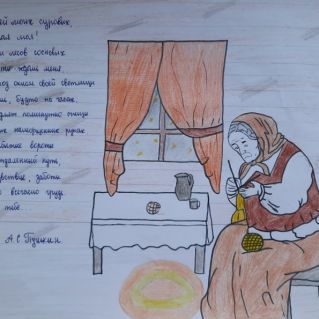 ей моих суровых,
ая моя!
и лесов сосновых
ты ждешь меня.
под окном своей светлицы
, будто на часах,
едлят поминутно спицы
наморщенных руках
бытые вороты
отдаленный путь,
вствие, заботы
всечасно грудь
тебе.
А.С Пушкин